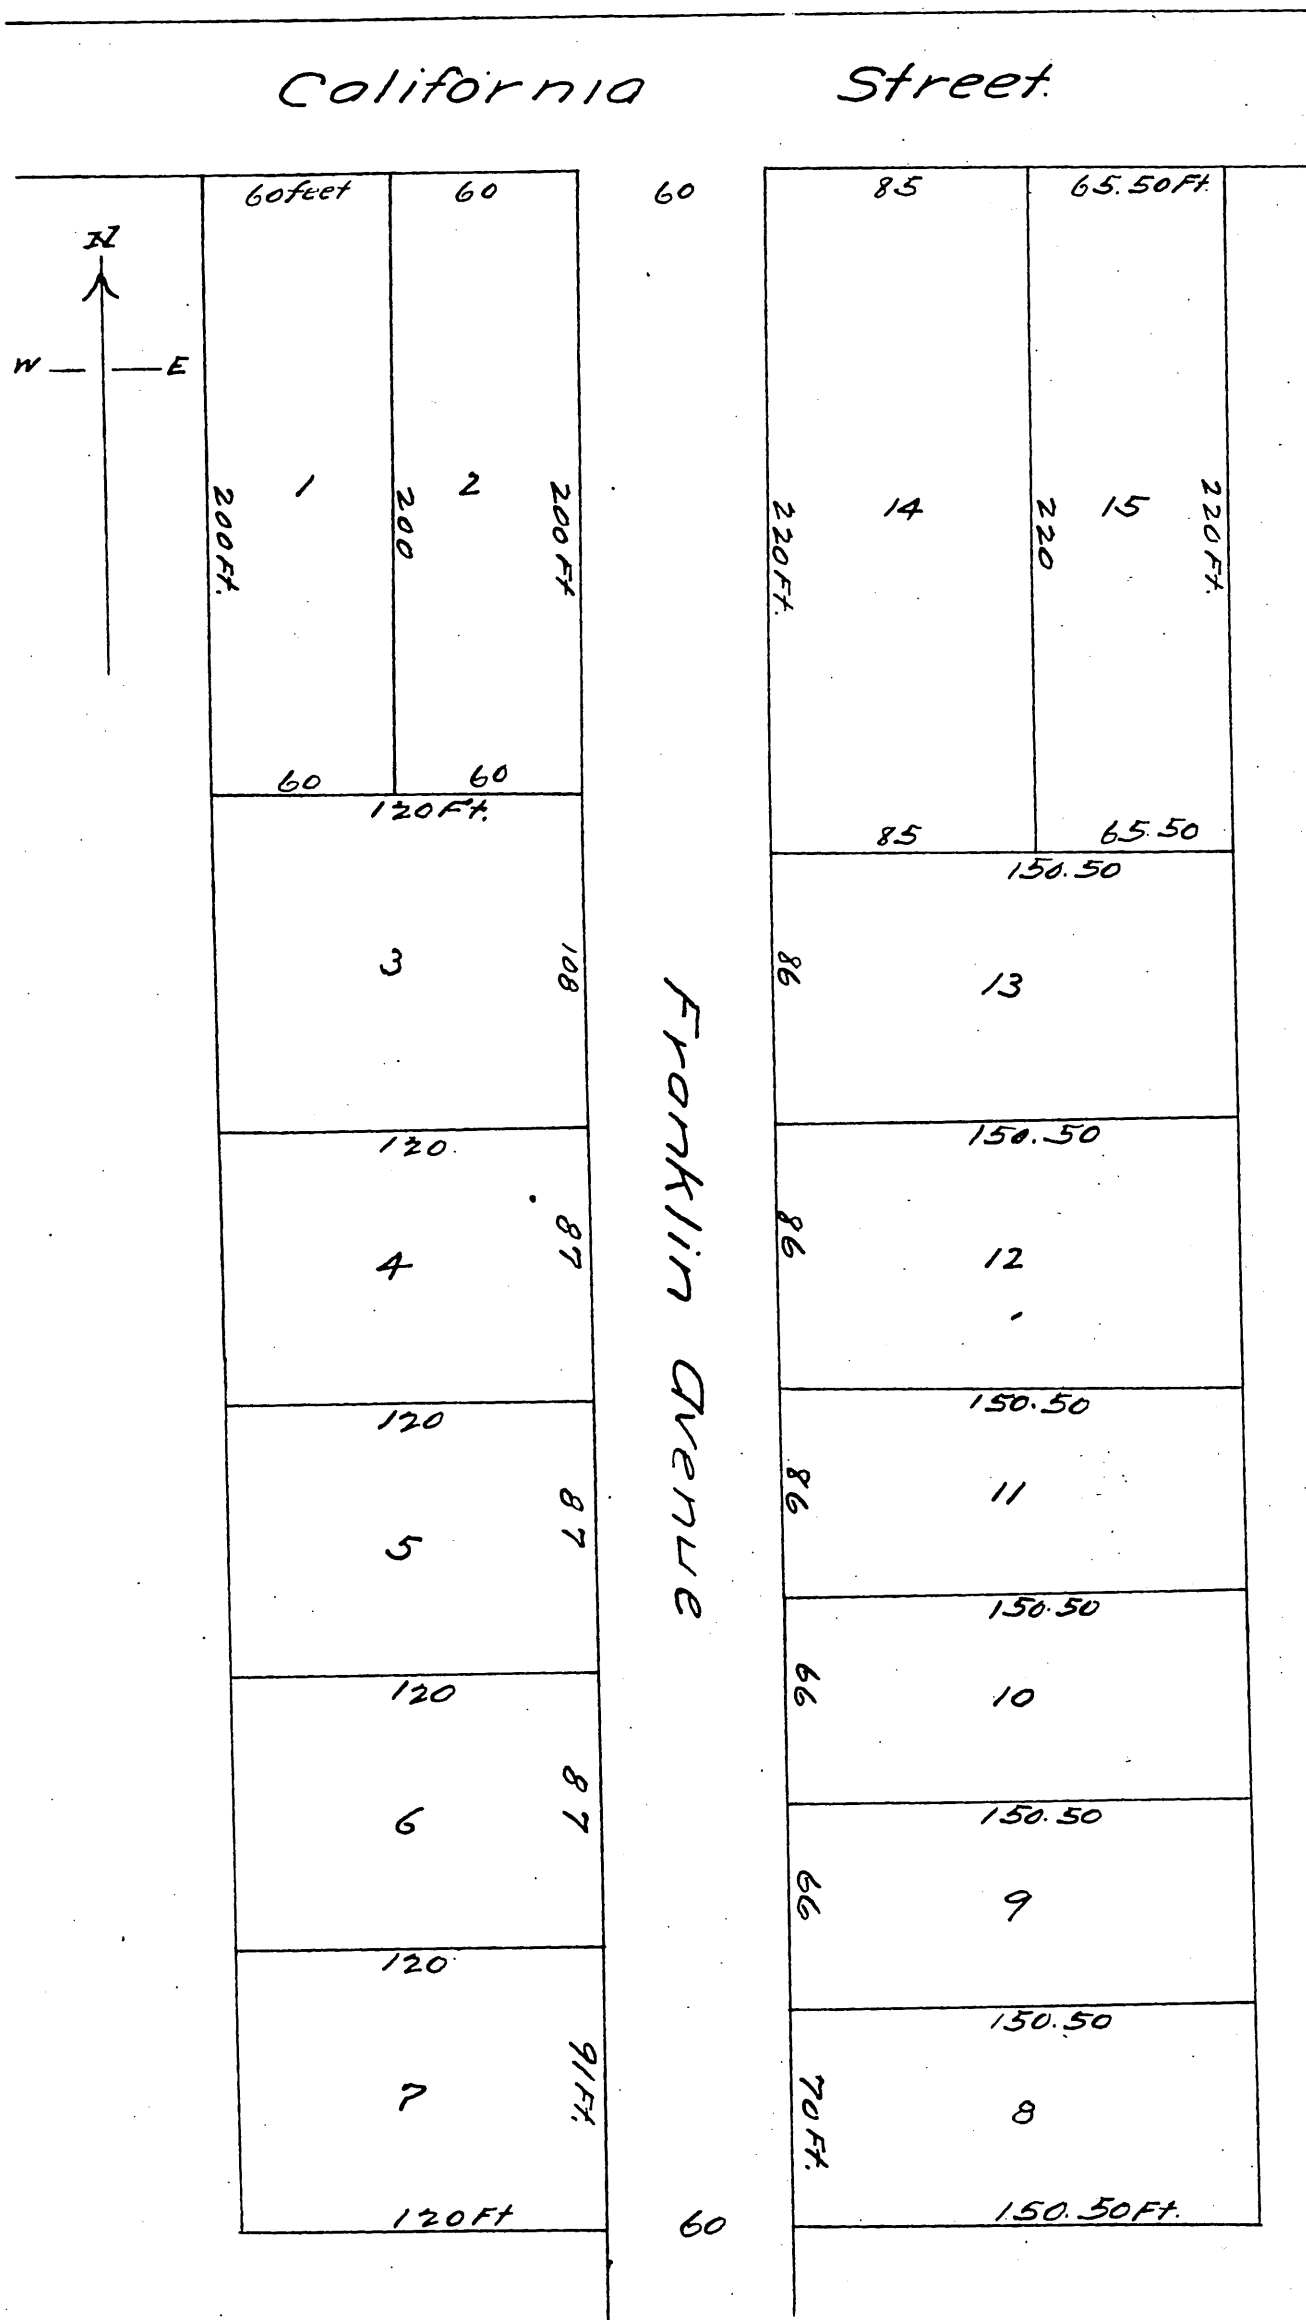 California Street.
60 feet 60 60 85 65.50 Ft.
N
W E
1 2 14 15
200 Ft. 200 200 Ft 220 Ft. 220 220 Ft.
60 60
120 Ft.
85 65.50
150.50
3 108
86 13
120
150.50
4 87
86 12
120
150.50
5 87
86 11
150.50
120
66 10
6 87
150.50
66 9
120
150.50
7 91 Ft.
70 Ft. 8
120 Ft 60 150.50 Ft.
Franklin Avenue